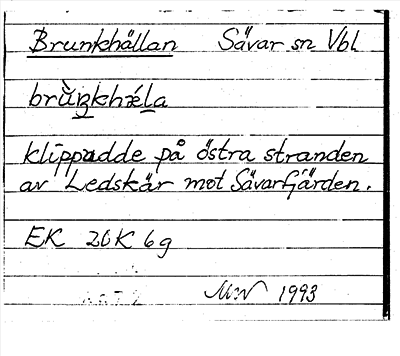 Brunkhällan Sävar sn Vbl
brùŋkhǽla
klippudde på östra stranden
av Ledskär mot Sävarfjärden.
EK 20K 6g
MW 1993